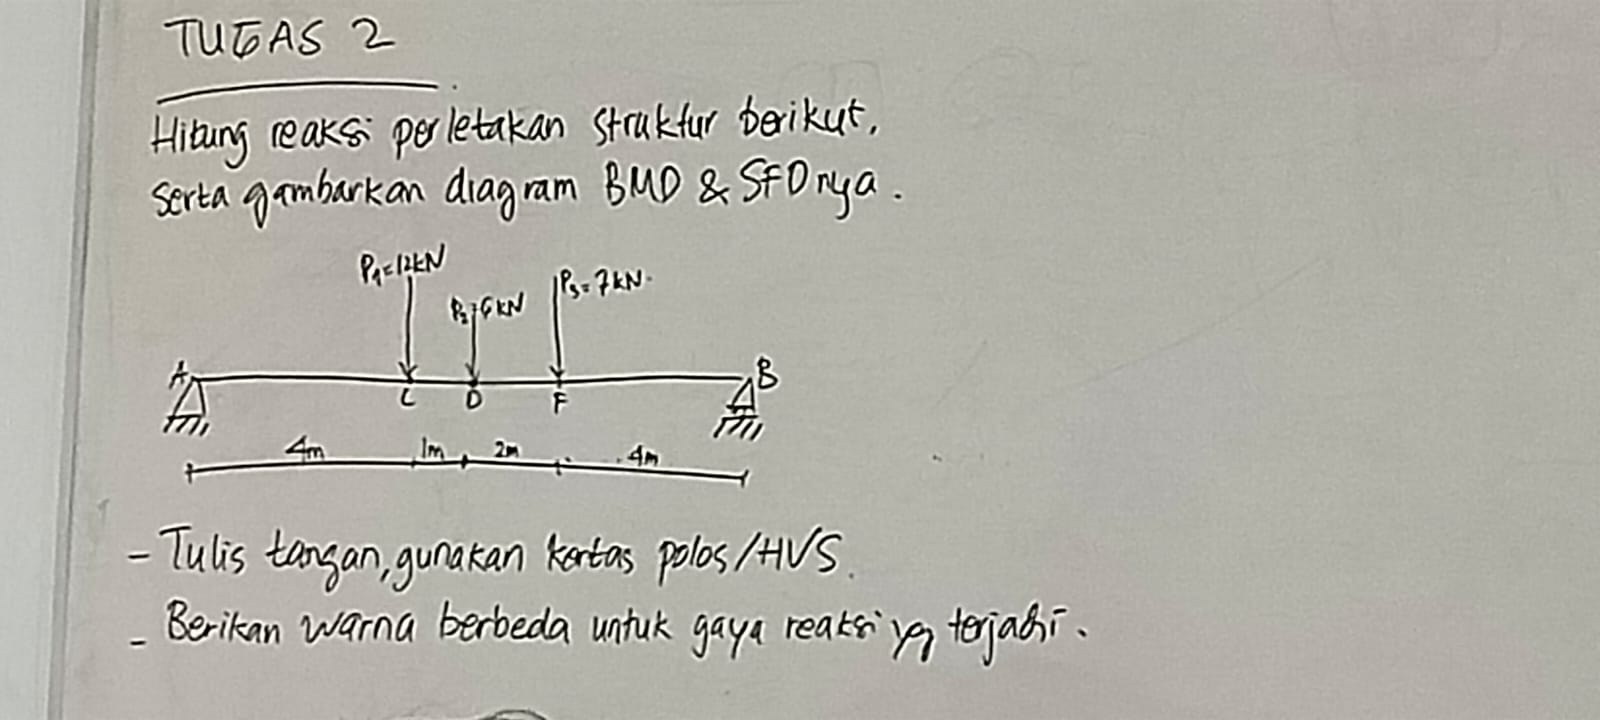 TUGAS 2
Hitung reaksi perletakan struktur berikut,
serta gambarkan diagram BMD & SFDnya.
P1=12kN
P2=6kN
P3=7kN.
A
B
C
D
F
4m
1m
2m
4m
- Tulis tangan, gunakan kertas polos/HVS.
- Berikan warna berbeda untuk gaya reaksi yg terjadi.